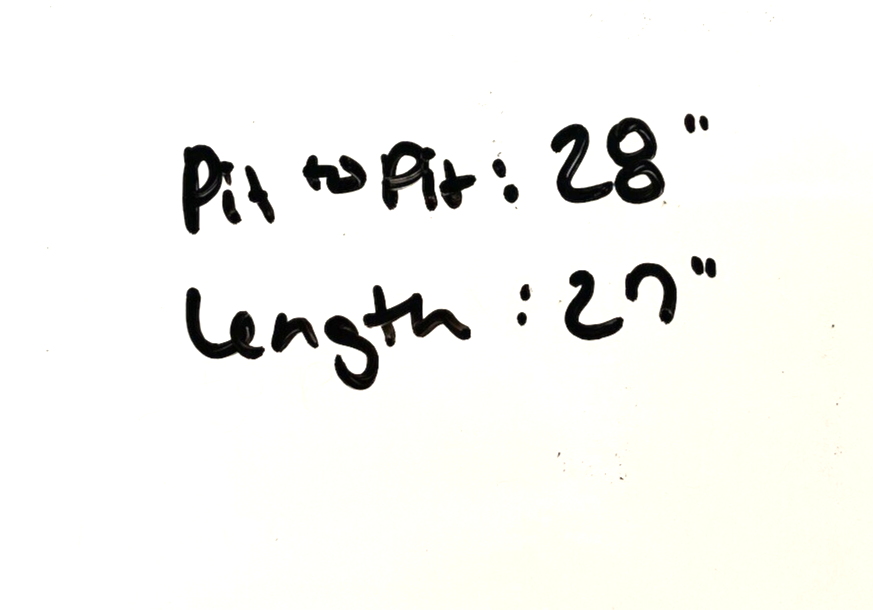 Pit to Pit: 28"
Length: 27"